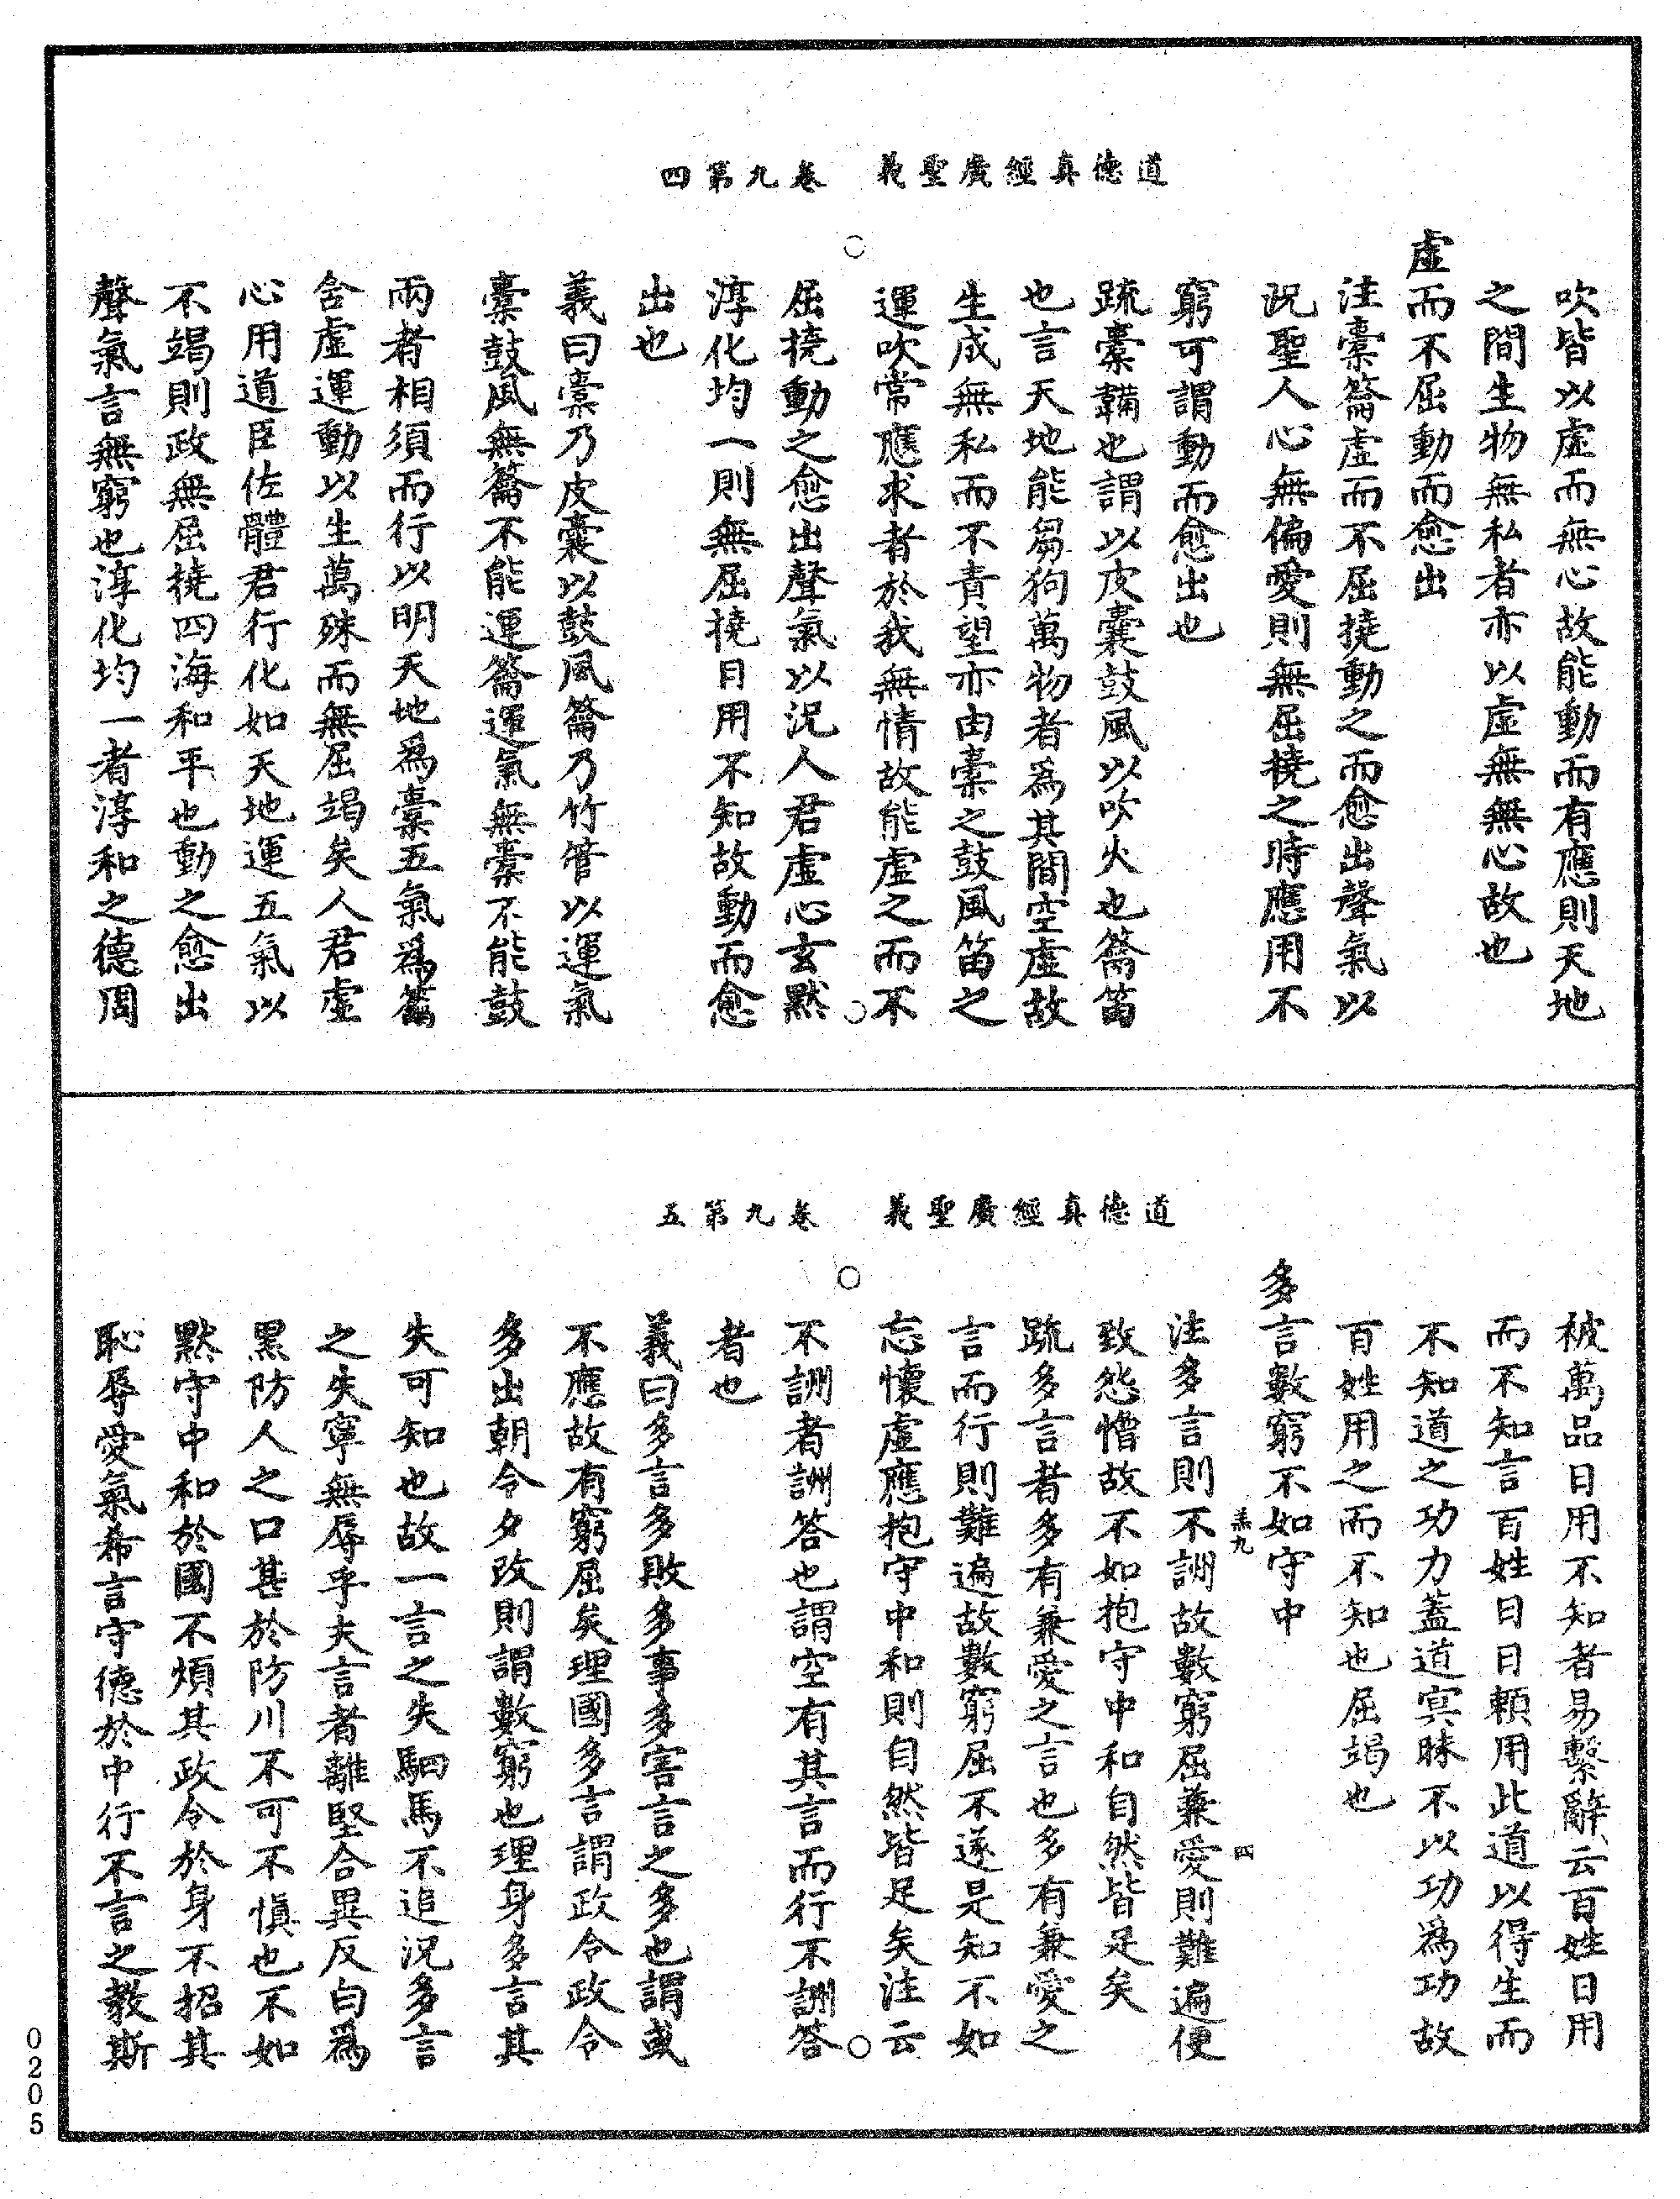 道德真經廣聖義　卷九第四
吹皆以虛而無心故能動而有應則天地
之間生物無私者亦以虛無無心故也
虛而不屈動而愈出
注橐籥虛而不屈撓動之而愈出聲氣以
況聖人心無偏愛則無屈撓之時應用不
窮可謂動而愈出也
疏橐鞴也謂以皮囊鼓風以吹火也籥笛
也言天地能芻狗萬物者為其間空虛故
生成無私而不責望亦由橐之鼓風笛之
運吹常應求者於我無情故能虛之而不
屈撓動之愈出聲氣以況人君虛心玄默
淳化均一則無屈撓日用不知故動而愈
出也
義曰橐乃皮囊以鼓風籥乃竹管以運氣
橐鼓風無籥不能運籥運氣無橐不能鼓
兩者相須而行以明天地爲橐五氣爲籥
含虛運動以生萬殊而無屈竭矣人君虛
心用道臣佐體君行化如天地運五氣以
不竭則政無屈撓四海和平也動之愈出
聲氣言無窮也淳化均一者淳和之德周
道德真經廣聖義　卷九第五
被萬品日用不知者易繫辭云百姓日用
而不知言百姓日日賴用此道以得生而
不知道之功力蓋道冥昧不以功爲功故
百姓用之而不知也屈竭也
多言數窮不如守中
羔九　四
注多言則不詶故數窮屈兼愛則難遍便
致怨憎故不如抱守中和自然皆足矣
疏多言者多有兼愛之言也多有兼愛之
言而行則難遍故數窮屈不遂是知不如
忘懷虛應抱守中和則自然皆足矣注云
不詶者詶答也謂空有其言而行不詶答
者也
義曰多言多敗多事多害言之多也謂或
不應故有窮屈矣理國多言謂政令政令
多出朝令夕改則謂數窮也理身多言其
失可知也故一言之失駟馬不追況多言
之失寧無辱乎夫言者離堅合異反白爲
黑防人之口甚於防川不可不慎也不如
默守中和於國不煩其政令於身不招其
恥辱愛氣希言守德於中行不言之教斯
0205